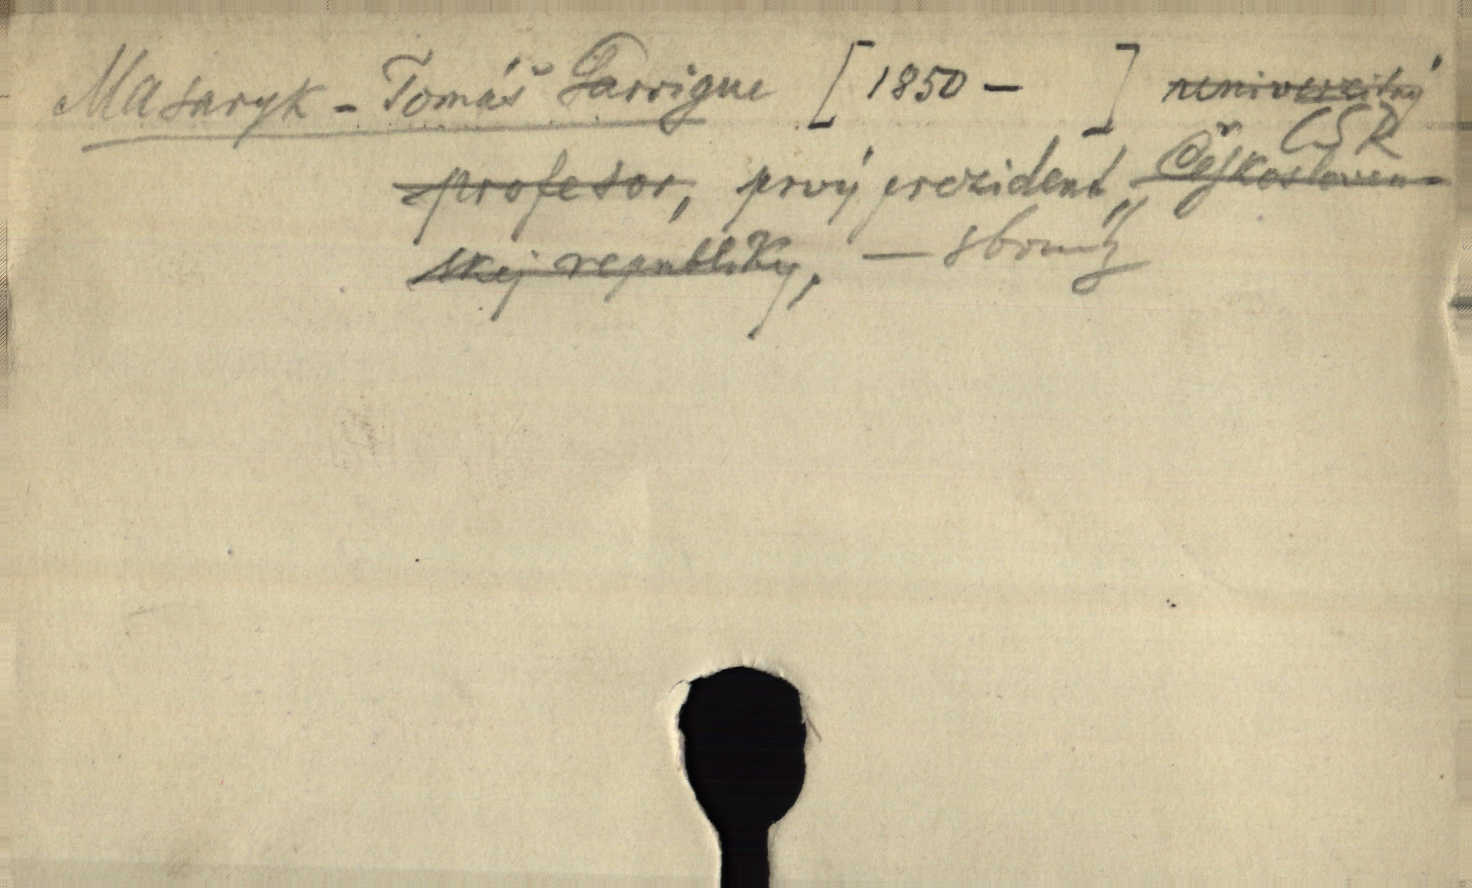 Masaryk - Tomáš Garrigue [1850 - ] univerzitný
ČSR
profesor, prvý prezident Českosloven-
skej republiky, -